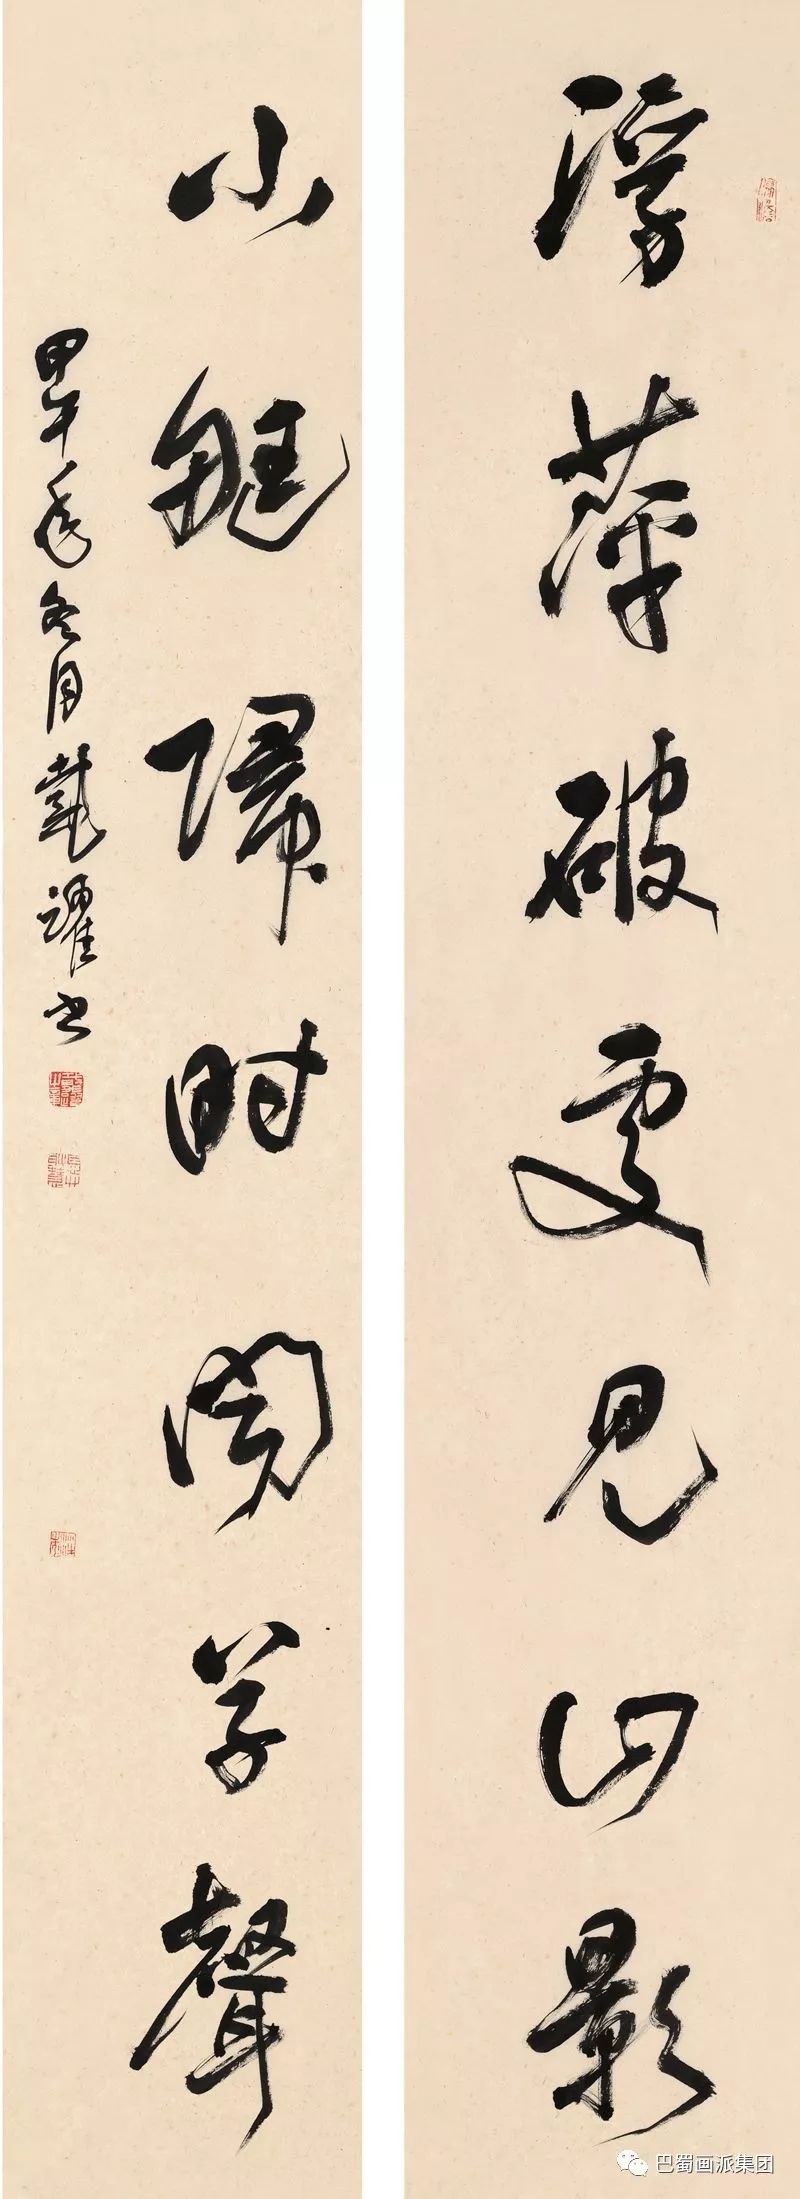 浮萍破處見山影
小艇歸時聞草聲
甲午年冬月戴躍書
巴蜀画派集团